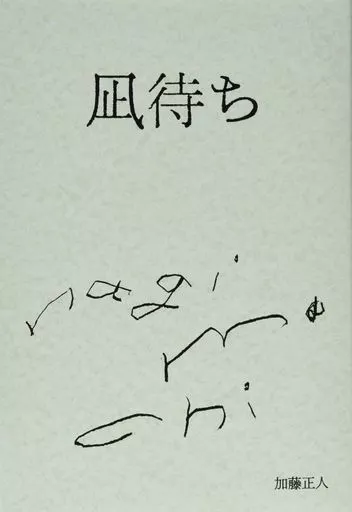 凪待ち
nagi
ma
chi
加藤正人